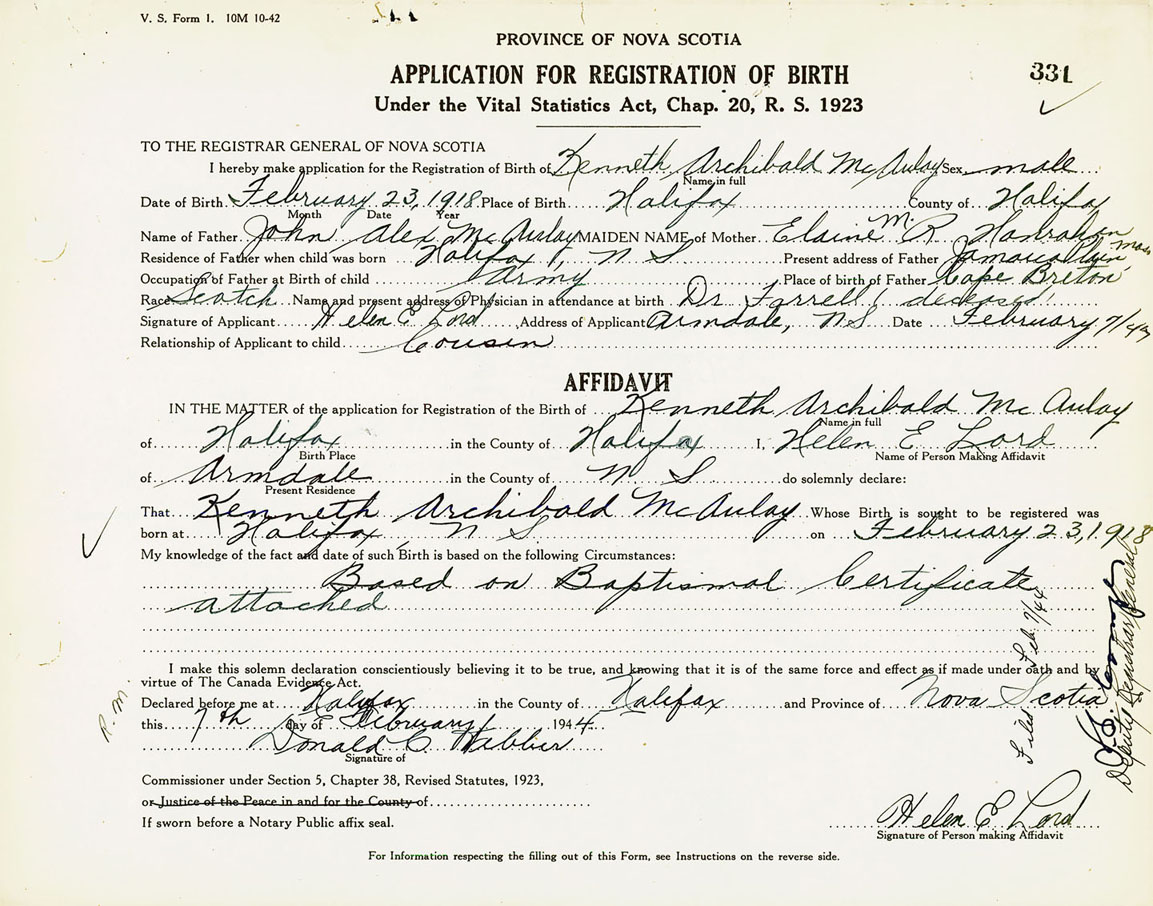 V. S. Form 1. 10M 10-42
PROVINCE OF NOVA SCOTIA
APPLICATION FOR REGISTRATION OF BIRTH
331
Under the Vital Statistics Act, Chap. 20, R. S. 1923
TO THE REGISTRAR GENERAL OF NOVA SCOTIA
I hereby make application for the Registration of Birth of Kenneth Archibald McAulay Sex male
Name in full
Date of Birth February 23, 1918 Place of Birth Halifax County of Halifax
Month Date Year
Name of Father John Alex McAulay MAIDEN NAME of Mother Elaine M. R Hanrahan
Residence of Father when child was born Halifax, N S Present address of Father Jamaica Plain Mass
Occupation of Father at Birth of child Army Place of birth of Father Cape Breton
Race Scotch Name and present address of Physician in attendance at birth Dr Farrell (deceased)
Signature of Applicant Helen E Lord Address of Applicant Armdale, N S Date February 7/44
Relationship of Applicant to child Cousin
AFFIDAVIT
IN THE MATTER of the application for Registration of the Birth of Kenneth Archibald McAulay
Name in full
of Halifax in the County of Halifax I, Helen E Lord
Birth Place Name of Person Making Affidavit
of Armdale in the County of N S do solemnly declare:
Present Residence
That Kenneth Archibald McAulay Whose Birth is sought to be registered was
born at Halifax, N S on February 23, 1918
My knowledge of the fact and date of such Birth is based on the following Circumstances:
Based on Baptismal Certificate
attached
I make this solemn declaration conscientiously believing it to be true, and knowing that it is of the same force and effect as if made under oath and by
virtue of The Canada Evidence Act.
Declared before me at Halifax in the County of Halifax and Province of Nova Scotia
this 7th day of February 1944.
Donald C Webber
Signature of
Commissioner under Section 5, Chapter 38, Revised Statutes, 1923,
or Justice of the Peace in and for the County of
If sworn before a Notary Public affix seal.
Helen E Lord
Signature of Person making Affidavit
For Information respecting the filling out of this Form, see Instructions on the reverse side.
R. M.
Filed Feb. 7/44
Deputy Registrar General